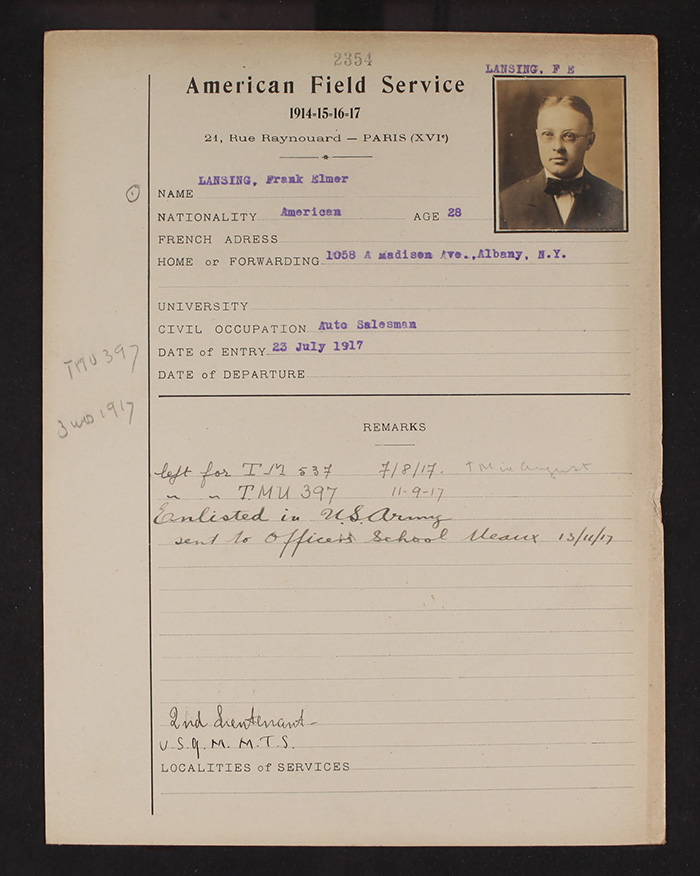 2354
LANSING, F E
American Field Service
1914-15-16-17
21, Rue Raynouard — PARIS (XVIe)
LANSING, Frank Elmer
NAME
NATIONALITY American AGE 28
FRENCH ADRESS
HOME or FORWARDING 1058 A Madison Ave., Albany, N.Y.
UNIVERSITY
CIVIL OCCUPATION Auto Salesman
DATE of ENTRY 23 July 1917
DATE of DEPARTURE
TMU 397
1917
REMARKS
left for TM 537 7/8/17. TM in August
" " T.M.U 397 11-9-17
Enlisted in U.S. Army
sent to Officers School Meaux 13/11/17
2nd Lieutenant
U.S.Q.M.M.T.S.
LOCALITIES of SERVICES